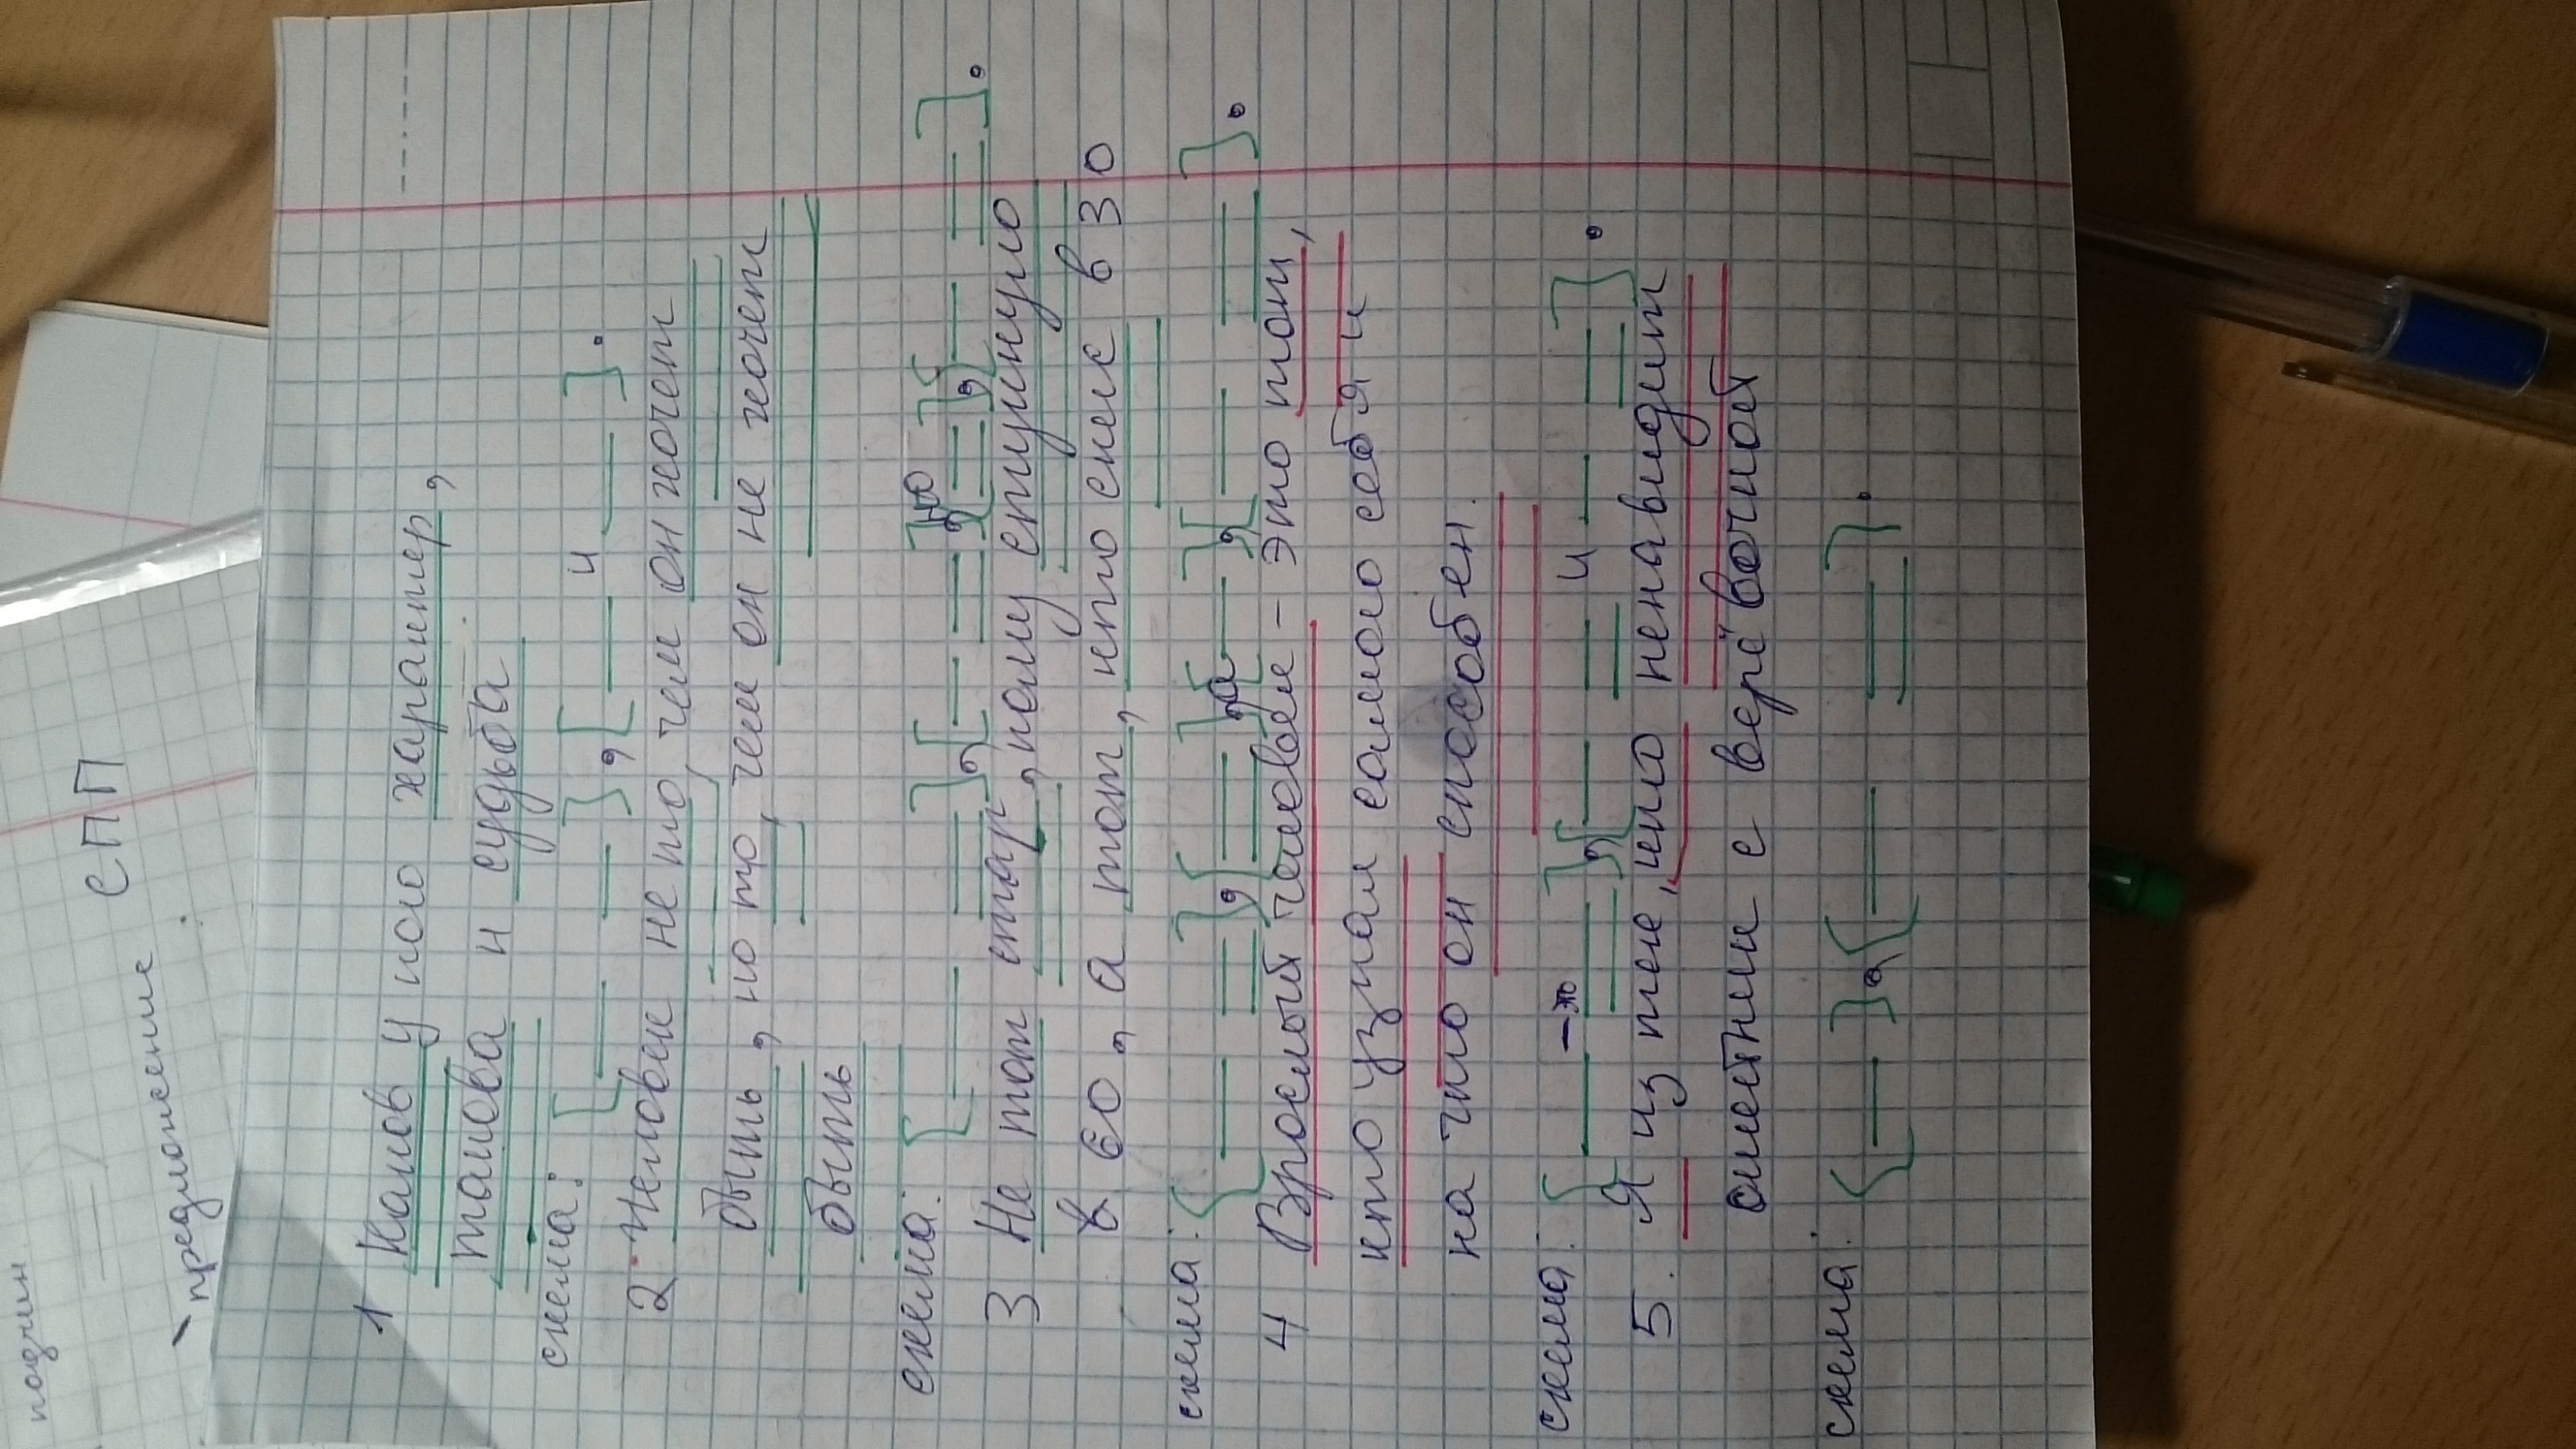 подчин
СПП
предложение
1 Каков у кого характер,
такова и судьба
схема: , и .
2 Человек не то, чем он хочет
быть, но то, чем он не хочет
быть
схема: , , но , .
3 Не тот стар, кому стукнуло
в 60, а тот, кто скис в 30
схема: , , а , .
4 Взрослый человек - это тот,
кто узнал самого себя и
на что он способен.
схема: - это , и .
5. Я из тех, кто ненавидит
сплетни с верёвочной
схема: , .